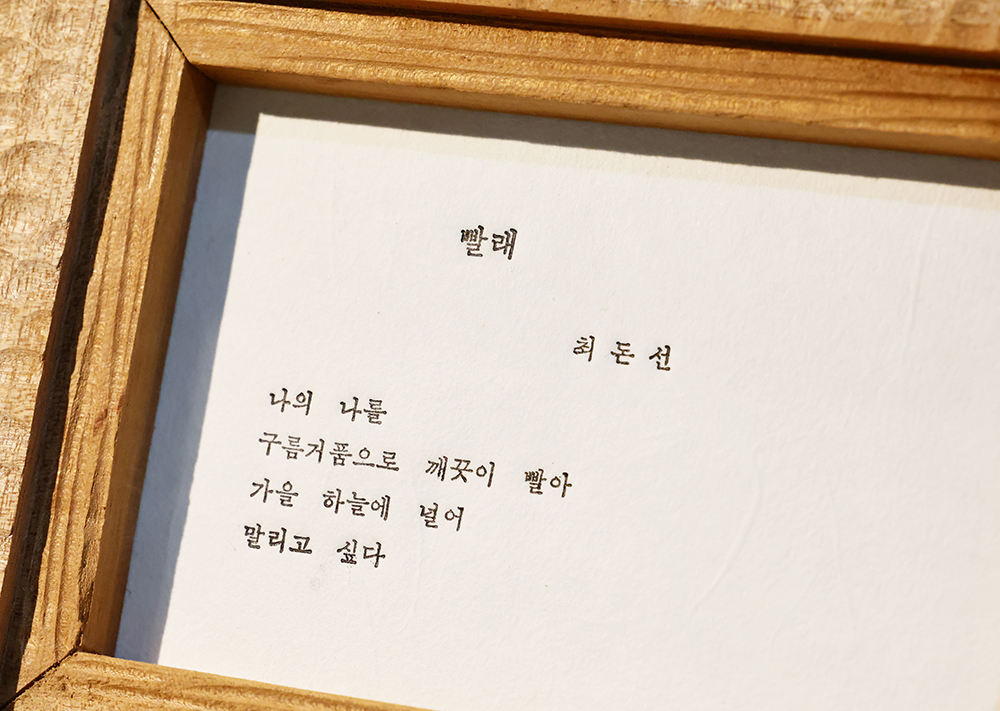 빨래
최 돈 선
나의 나를
구름거품으로 깨끗이 빨아
가을 하늘에 널어
말리고 싶다